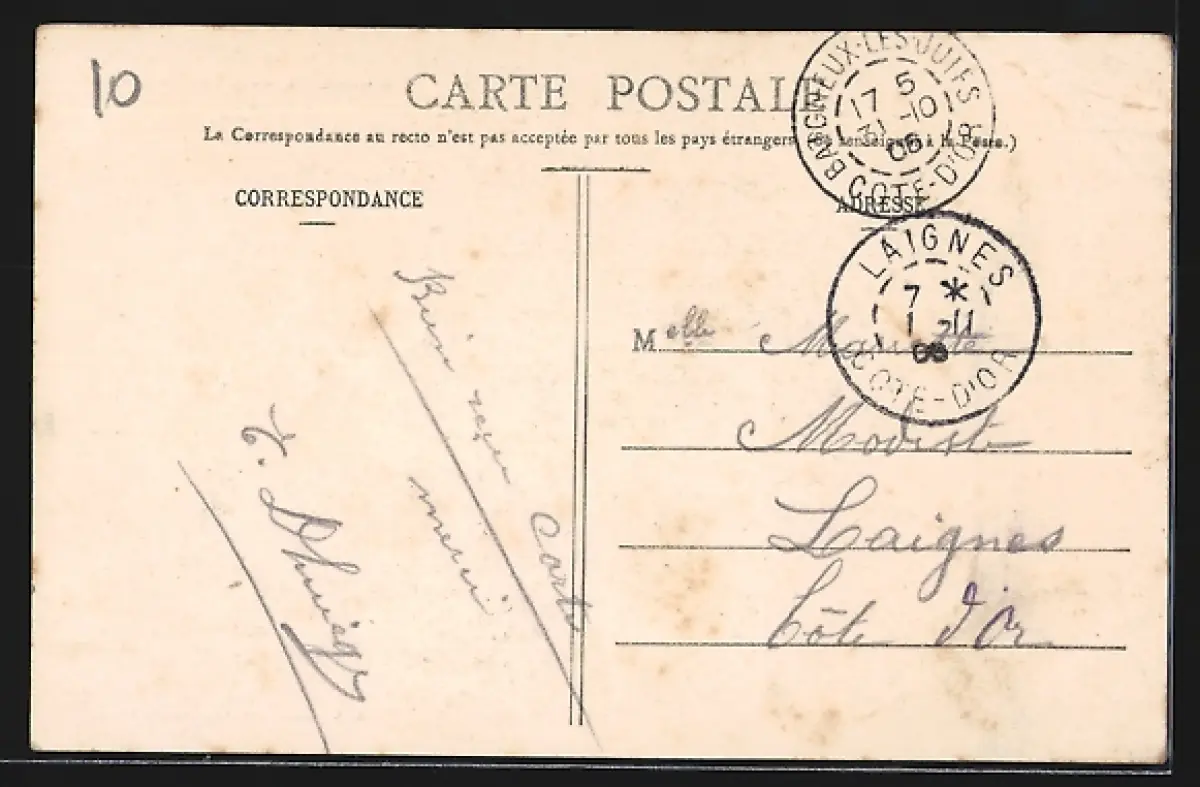 10
CARTE POSTALE
La Correspondance au recto n'est pas acceptée par tous les pays étrangers (se renseigner à la Poste.)
CORRESPONDANCE
ADRESSE
BAIGNEUX-LES-JUIFS
5
17
31 -10
06
COTE-D'OR
LAIGNES
7 *
1 -11
06
COTE-D'OR
Bien reçu carte
merci
Melle
Modiste
Laignes
Côte d'Or